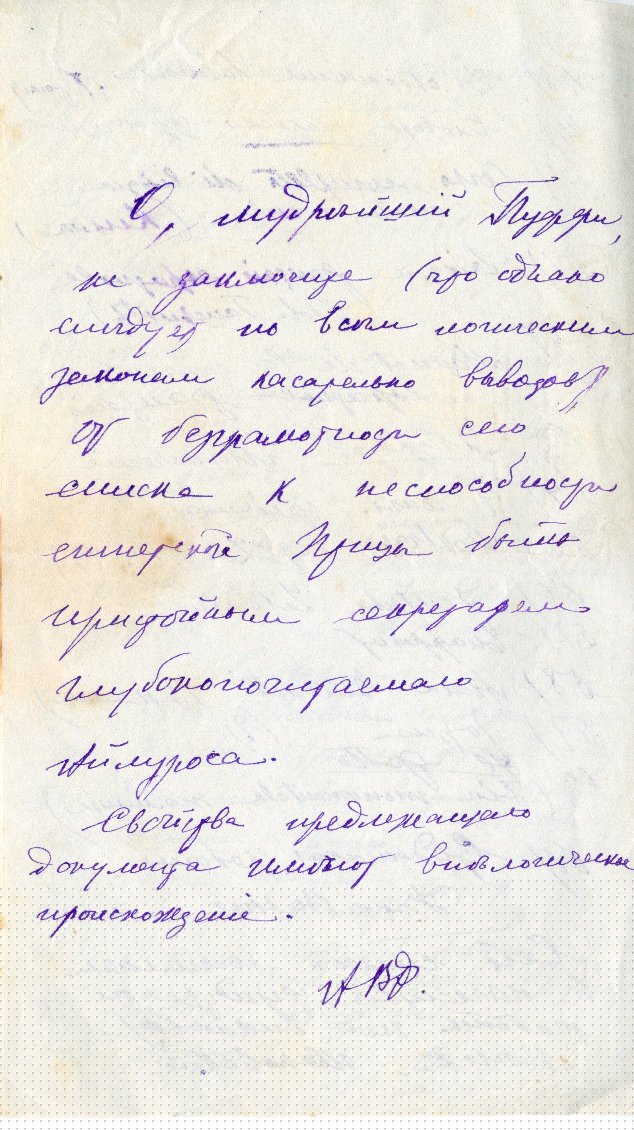 О, мудрѣйшій Пуффи,
не заключите (что однако
слѣдуетъ по всѣм логическим
законам касательно выводов)
от безграмотности сего
списка к неспособности
сиперской Птицы быть
пристойным секретарем
глубокопочитаемаго
Айлуроса.
Свойства предлежащаго
документа имѣют внѣлогическое
происхожденіе.
АВД.